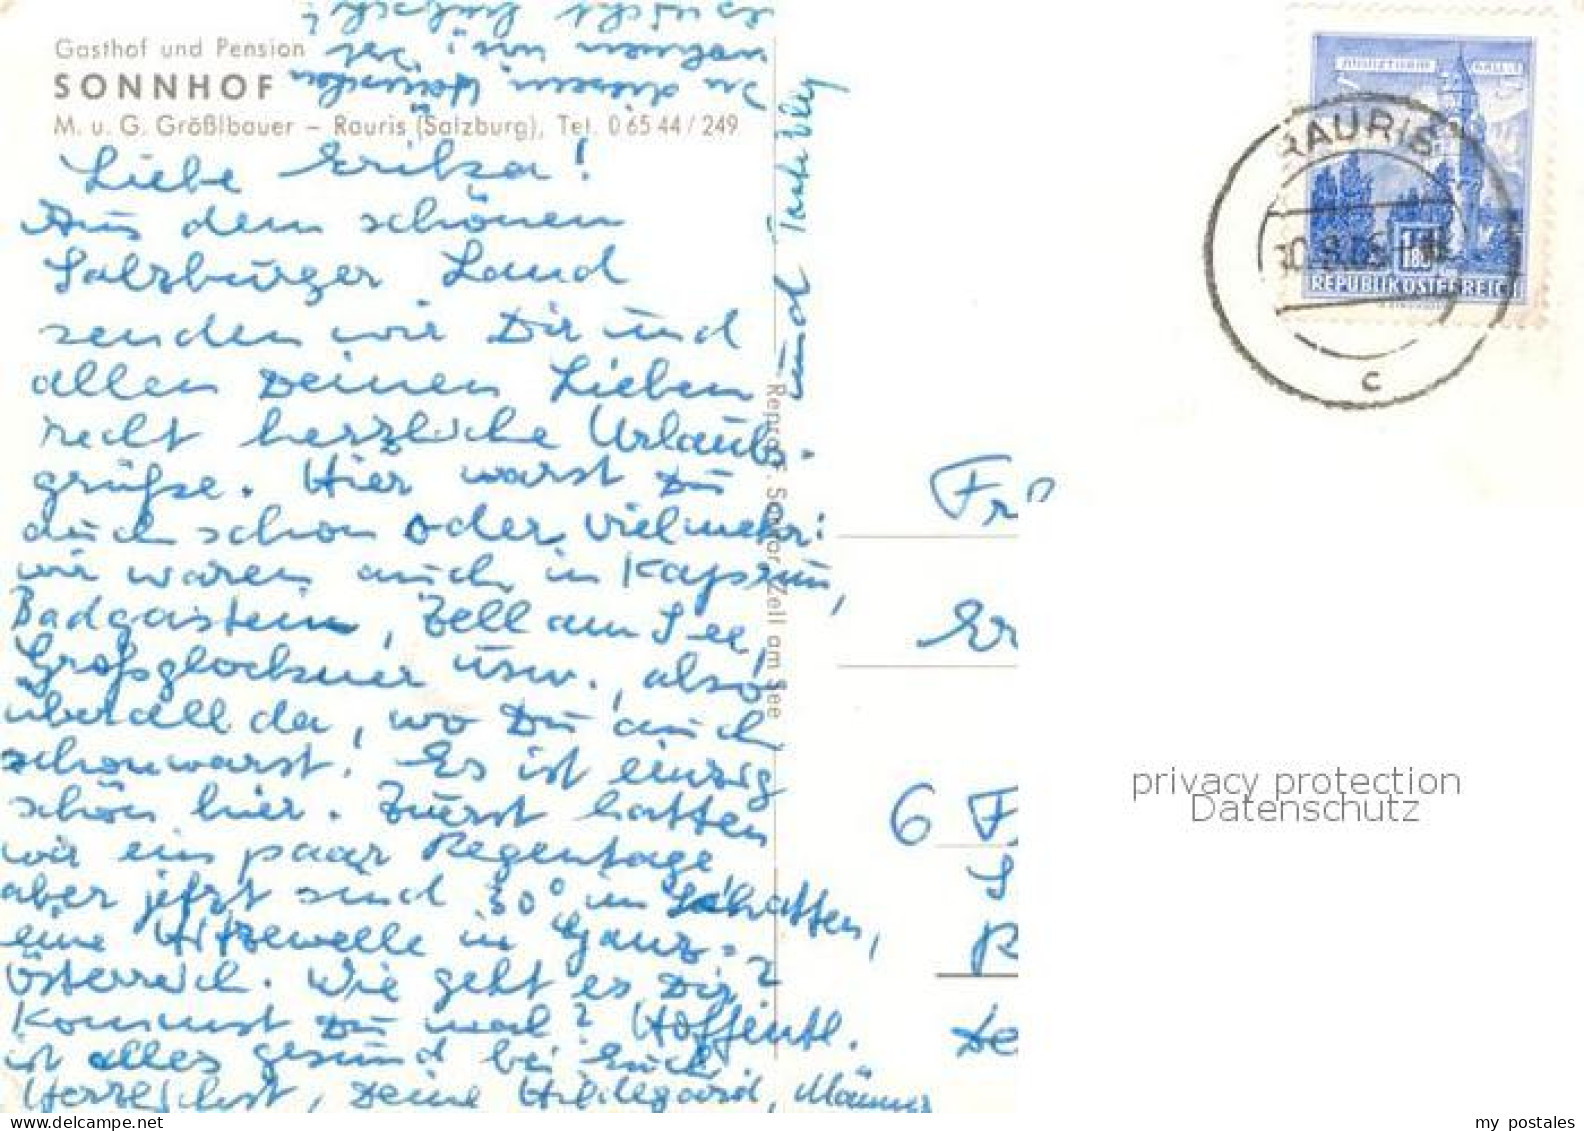 Gasthof und Pension
SONNHOF
M. u. G. Größlbauer – Rauris (Salzburg), Tel. 0 65 44 / 249
Liebe Erika!
Aus dem schönen
Salzburger Land
senden wir Dir und
allen Deinen Lieben
recht herzliche Urlaubs-
grüße. Hier warst Du
auch schon oder vielmehr:
wir waren auch in Kaprun,
Badgastein, Zell am See,
Großglockner usw., also
überall da, wo Du auch
schon warst! Es ist einzig
schön hier. Zuerst hatten
wir ein paar Regentage
aber jetzt sind 30° im Schatten,
eine Hitzewelle in Ganz-
Österreich. Wie geht es Dir?
Kommst Du mal? Hoffentl.
ist alles gesund bei Euch.
Herzlichst, Deine Hildegard, Männe
und Tante Elly
In diesem Häuschen
wohnen wir
Repro F. Schöar, Zell am See
Fr
Er
6 F
S
R
De
RAURIS
c
1.80
REPUBLIK ÖSTERREICH
privacy protection
Datenschutz
my postales